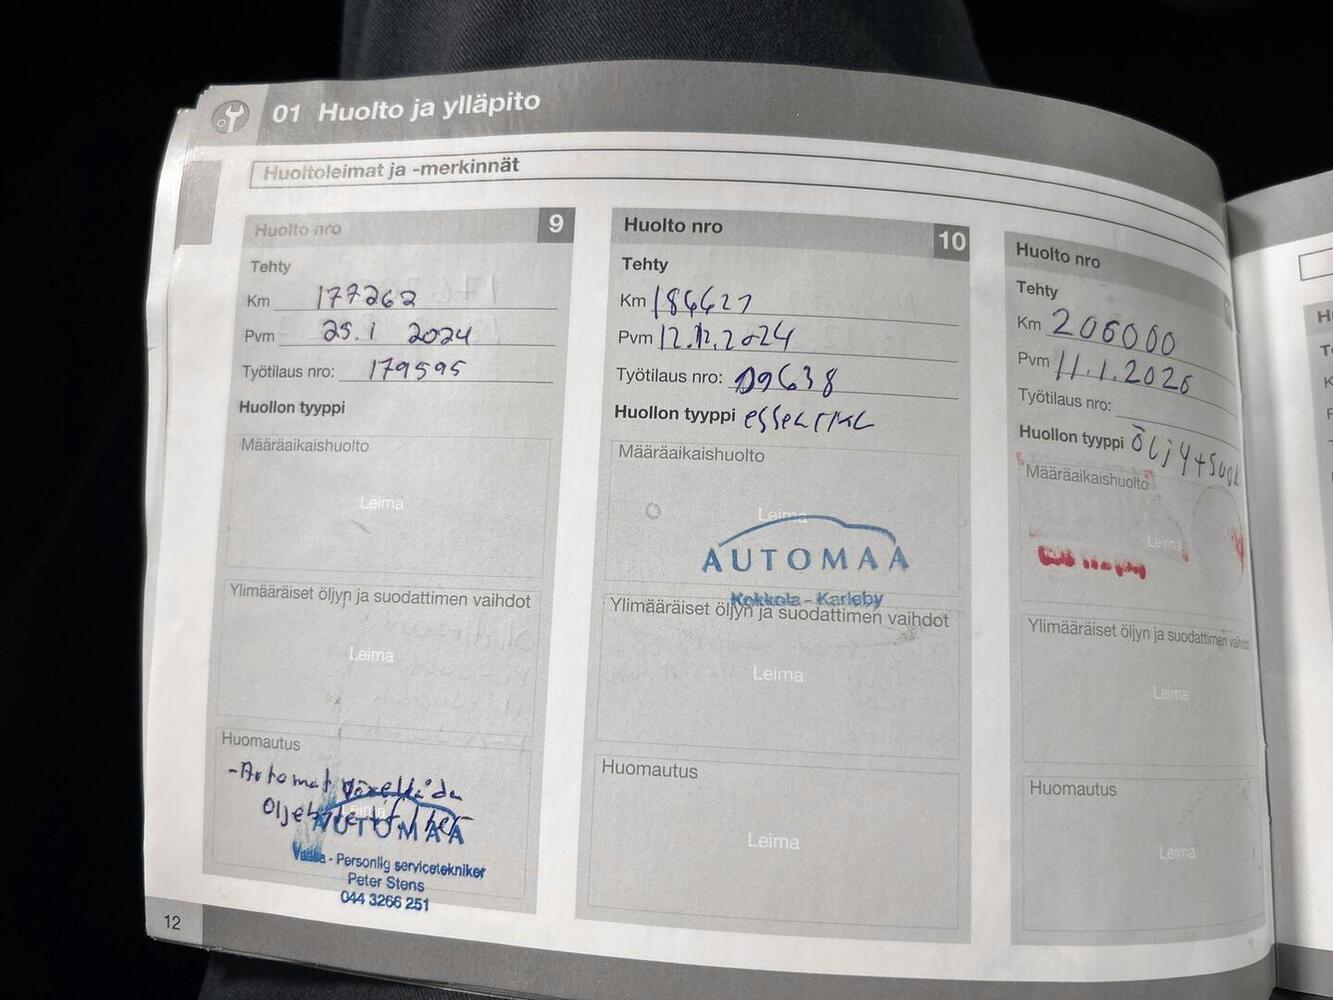 01 Huolto ja ylläpito
Huoltoleimat ja -merkinnät
Huolto nro 9
Tehty
Km 177262
Pvm 25.1 2024
Työtilaus nro: 179595
Huollon tyyppi
Määräaikaishuolto
Leima
Ylimääräiset öljyn ja suodattimen vaihdot
Leima
Huomautus
-Automat växellåda
Leima
AUTOMAA
Vaasa - Personlig servicetekniker
Peter Stens
044 3266 251
Huolto nro 10
Tehty
Km 186627
Pvm 12.12.2024
Työtilaus nro: 09638
Huollon tyyppi
Määräaikaishuolto
Leima
AUTOMAA
Kokkola - Karleby
Ylimääräiset öljyn ja suodattimen vaihdot
Leima
Huomautus
Leima
Huolto nro
Tehty
Km 206000
Pvm 11.1.2026
Työtilaus nro:
Huollon tyyppi öljy+suod
Määräaikaishuolto
Leima
Ylimääräiset öljyn ja suodattimen vaihdot
Leima
Huomautus
Leima
12